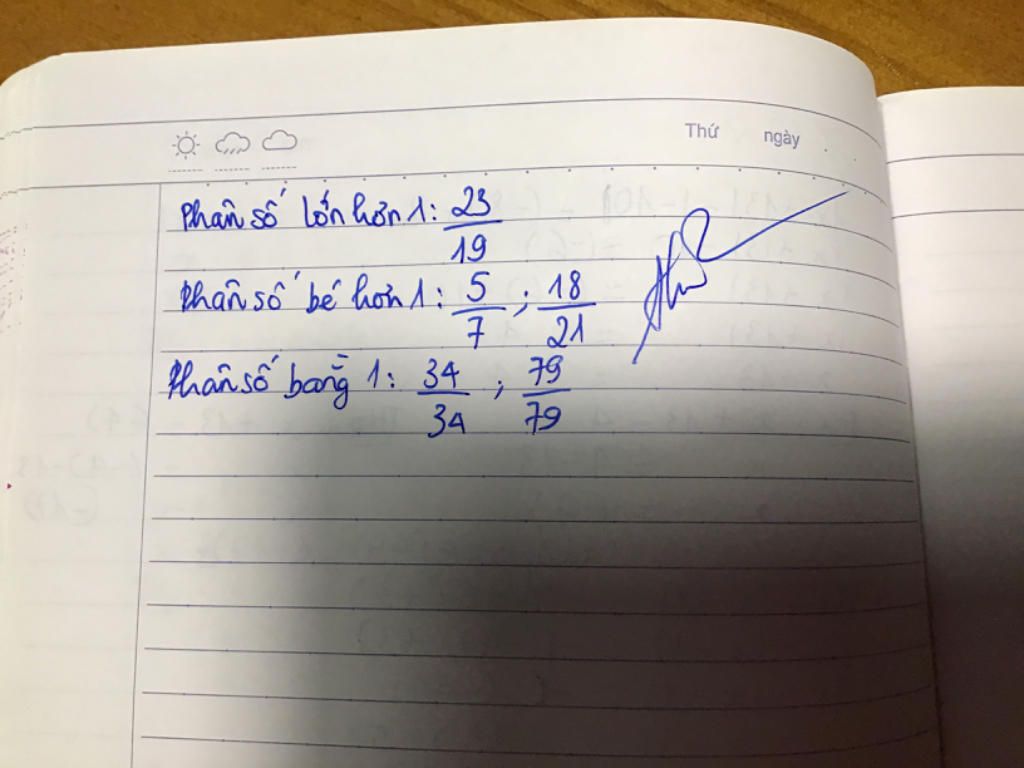 Thứ ngày
Phân số lớn hơn 1: 23/19
Phân số bé hơn 1: 5/7 ; 18/21
Phân số bằng 1: 34/34 ; 79/79